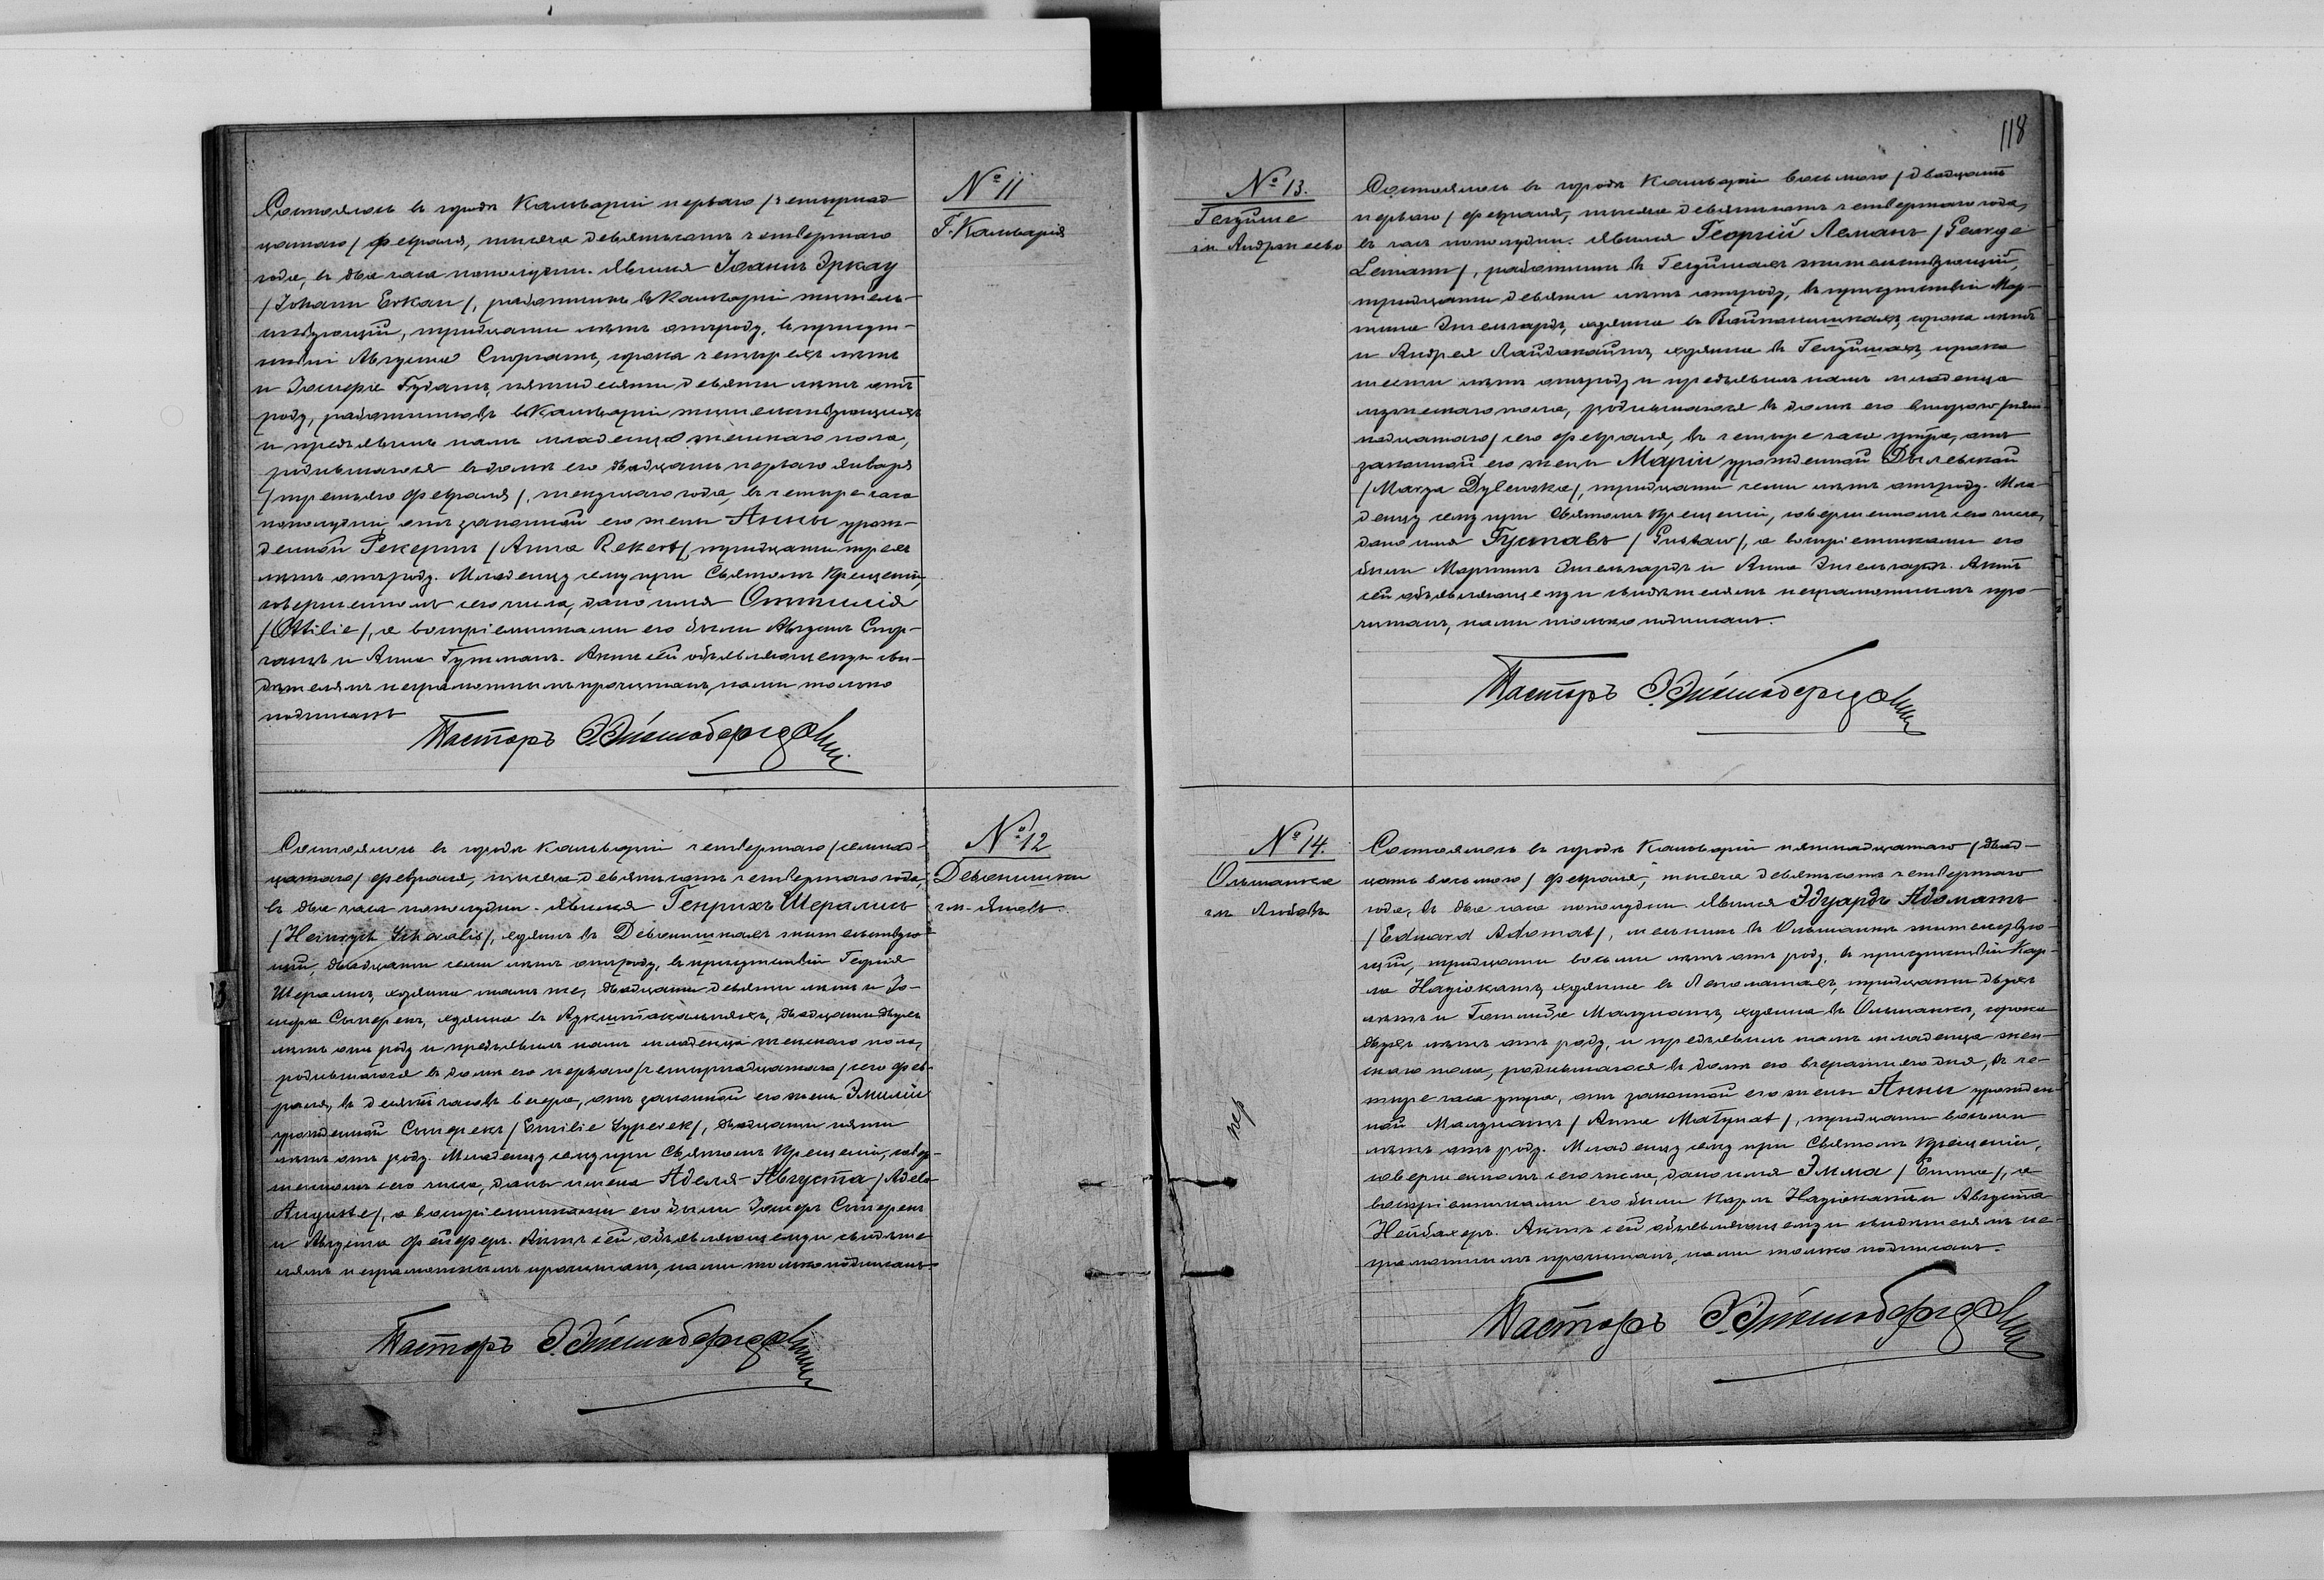 Состоялось въ городѣ Кальваріи перваго /четырнад-
цатаго/ февраля, тысяча девятьсотъ четвертаго
года, въ два часа пополудни. Явился Іоаннъ Эркау
/Johann Erkau/, работникъ въ Кальваріи житель-
ствующій, тридцати лѣтъ отъ роду, въ присут-
ствіи Августа сорока четырехъ лѣтъ
и Іосифа Гудатъ, пятидесяти девяти лѣтъ отъ
роду, работниковъ въ Кальваріи жительствующихъ
и предъявилъ намъ младенца женскаго пола,
родившагося въ домѣ его двадцать перваго января
/третьяго февраля/, текущаго года, въ четыре часа
пополудни, отъ законной его жены Анны урож-
денной Рекертъ /Anna Rekert/ тридцати трехъ
лѣтъ отъ роду. Младенцу сему при Святомъ Крещеніи,
совершенномъ сего числа, дано имя Оттилія
/Ottilie/, а воспріемниками его были Августъ
и Анна Гутманъ. Актъ сей объявляющему и сви-
дѣтелямъ неграмотнымъ прочитанъ, нами только
подписанъ
Пасторъ
№ 11
Г. Кальварія
Состоялось въ городѣ Кальваріи четвертаго /семнад-
цатаго/ февраля, тысяча девятьсотъ четвертаго года,
въ два часа пополудни. Явился Генрихъ Шералисъ
/Heinrych Scheralis/, хозяинъ въ Девонишкахъ жительствую-
щій, двадцати семи лѣтъ отъ роду, въ присутствіи Георгія
Шералисъ, хозяина тамъ же, двадцати девяти лѣтъ и Іо-
сифа Сыперекъ, хозяина въ двадцати двухъ
лѣтъ отъ роду и предъявилъ намъ младенца женскаго пола,
родившагося въ домѣ его перваго /четырнадцатаго/ сего фев-
раля, въ десять часовъ вечера, отъ законной его жены Эмиліи
урожденной Сыперекъ /Emilie Syperek/, двадцати пяти
лѣтъ отъ роду. Младенцу сему при Святомъ Крещеніи, совер-
шенномъ сего числа, даны имена Аделя-Августа /Adela-
Auguste/, а воспріемниками его были Іосифъ Сыперекъ
и Августа Фейферъ. Актъ сей объявляющему и свидѣте-
лямъ неграмотнымъ прочитанъ, нами только подписанъ.
Пасторъ
№ 12
Девонишки
гм. Яновъ
118
№ 13.
Гечдише
гм. Андржеево
Состоялось въ городѣ Кальваріи восьмаго /двадцать
перваго/ февраля, тысяча девятьсотъ четвертаго года,
въ часъ пополудни. Явился Георгій Леманъ /George
Lemann/, работникъ въ жительствующій,
тридцати девяти лѣтъ отъ роду, въ присутствіи Мар-
тина Энгельгардъ, хозяина въ сорока лѣтъ
и Андрея хозяина въ сорока
шести лѣтъ отъ роду и предъявилъ намъ младенца
мужескаго пола, родившагося въ домѣ его втораго /пят-
надцатаго/ сего февраля, въ четыре часа утра, отъ
законной его жены Маріи урожденной Дылевской
/Marya Dylewska/, тридцати семи лѣтъ отъ роду. Мла-
денцу сему при Святомъ Крещеніи, совершенномъ сего числа,
дано имя Густавъ /Gustaw/, а воспріемниками его
были Мартинъ Энгельгардъ и Анна Энгельгардъ. Актъ
сей объявляющему и свидѣтелямъ неграмотнымъ про-
читанъ, нами только подписанъ.
Пасторъ
№ 14.
Ольшанка
гм. Любовъ
Состоялось въ городѣ Кальваріи пятнадцатаго /двад-
цать восьмаго/ февраля, тысяча девятьсотъ четвертаго
года, въ два часа пополудни. Явился Эдуардъ Адоматъ
/Eduard Adomat/, мельникъ въ Ольшанкѣ жительствую-
щій, тридцати восьми лѣтъ отъ роду, въ присутствіи Кар-
ла хозяина въ тридцати двухъ
лѣтъ и Готлиба Матунатъ, хозяина въ Ольшанкѣ, сорока
двухъ лѣтъ отъ роду, и предъявилъ намъ младенца жен-
скаго пола, родившагося въ домѣ его вчерашняго дня, въ че-
тыре часа утра, отъ законной его жены Анны урожден-
ной Матунатъ /Anna Matynat/, тридцати восьми
лѣтъ отъ роду. Младенцу сему при Святомъ Крещеніи,
совершенномъ сего числа, дано имя Эмма /Emma/, а
воспріемниками его были Карлъ и Августа
Нейбахеръ. Актъ сей объявляющему и свидѣтелямъ не-
грамотнымъ прочитанъ, нами только подписанъ.
Пасторъ